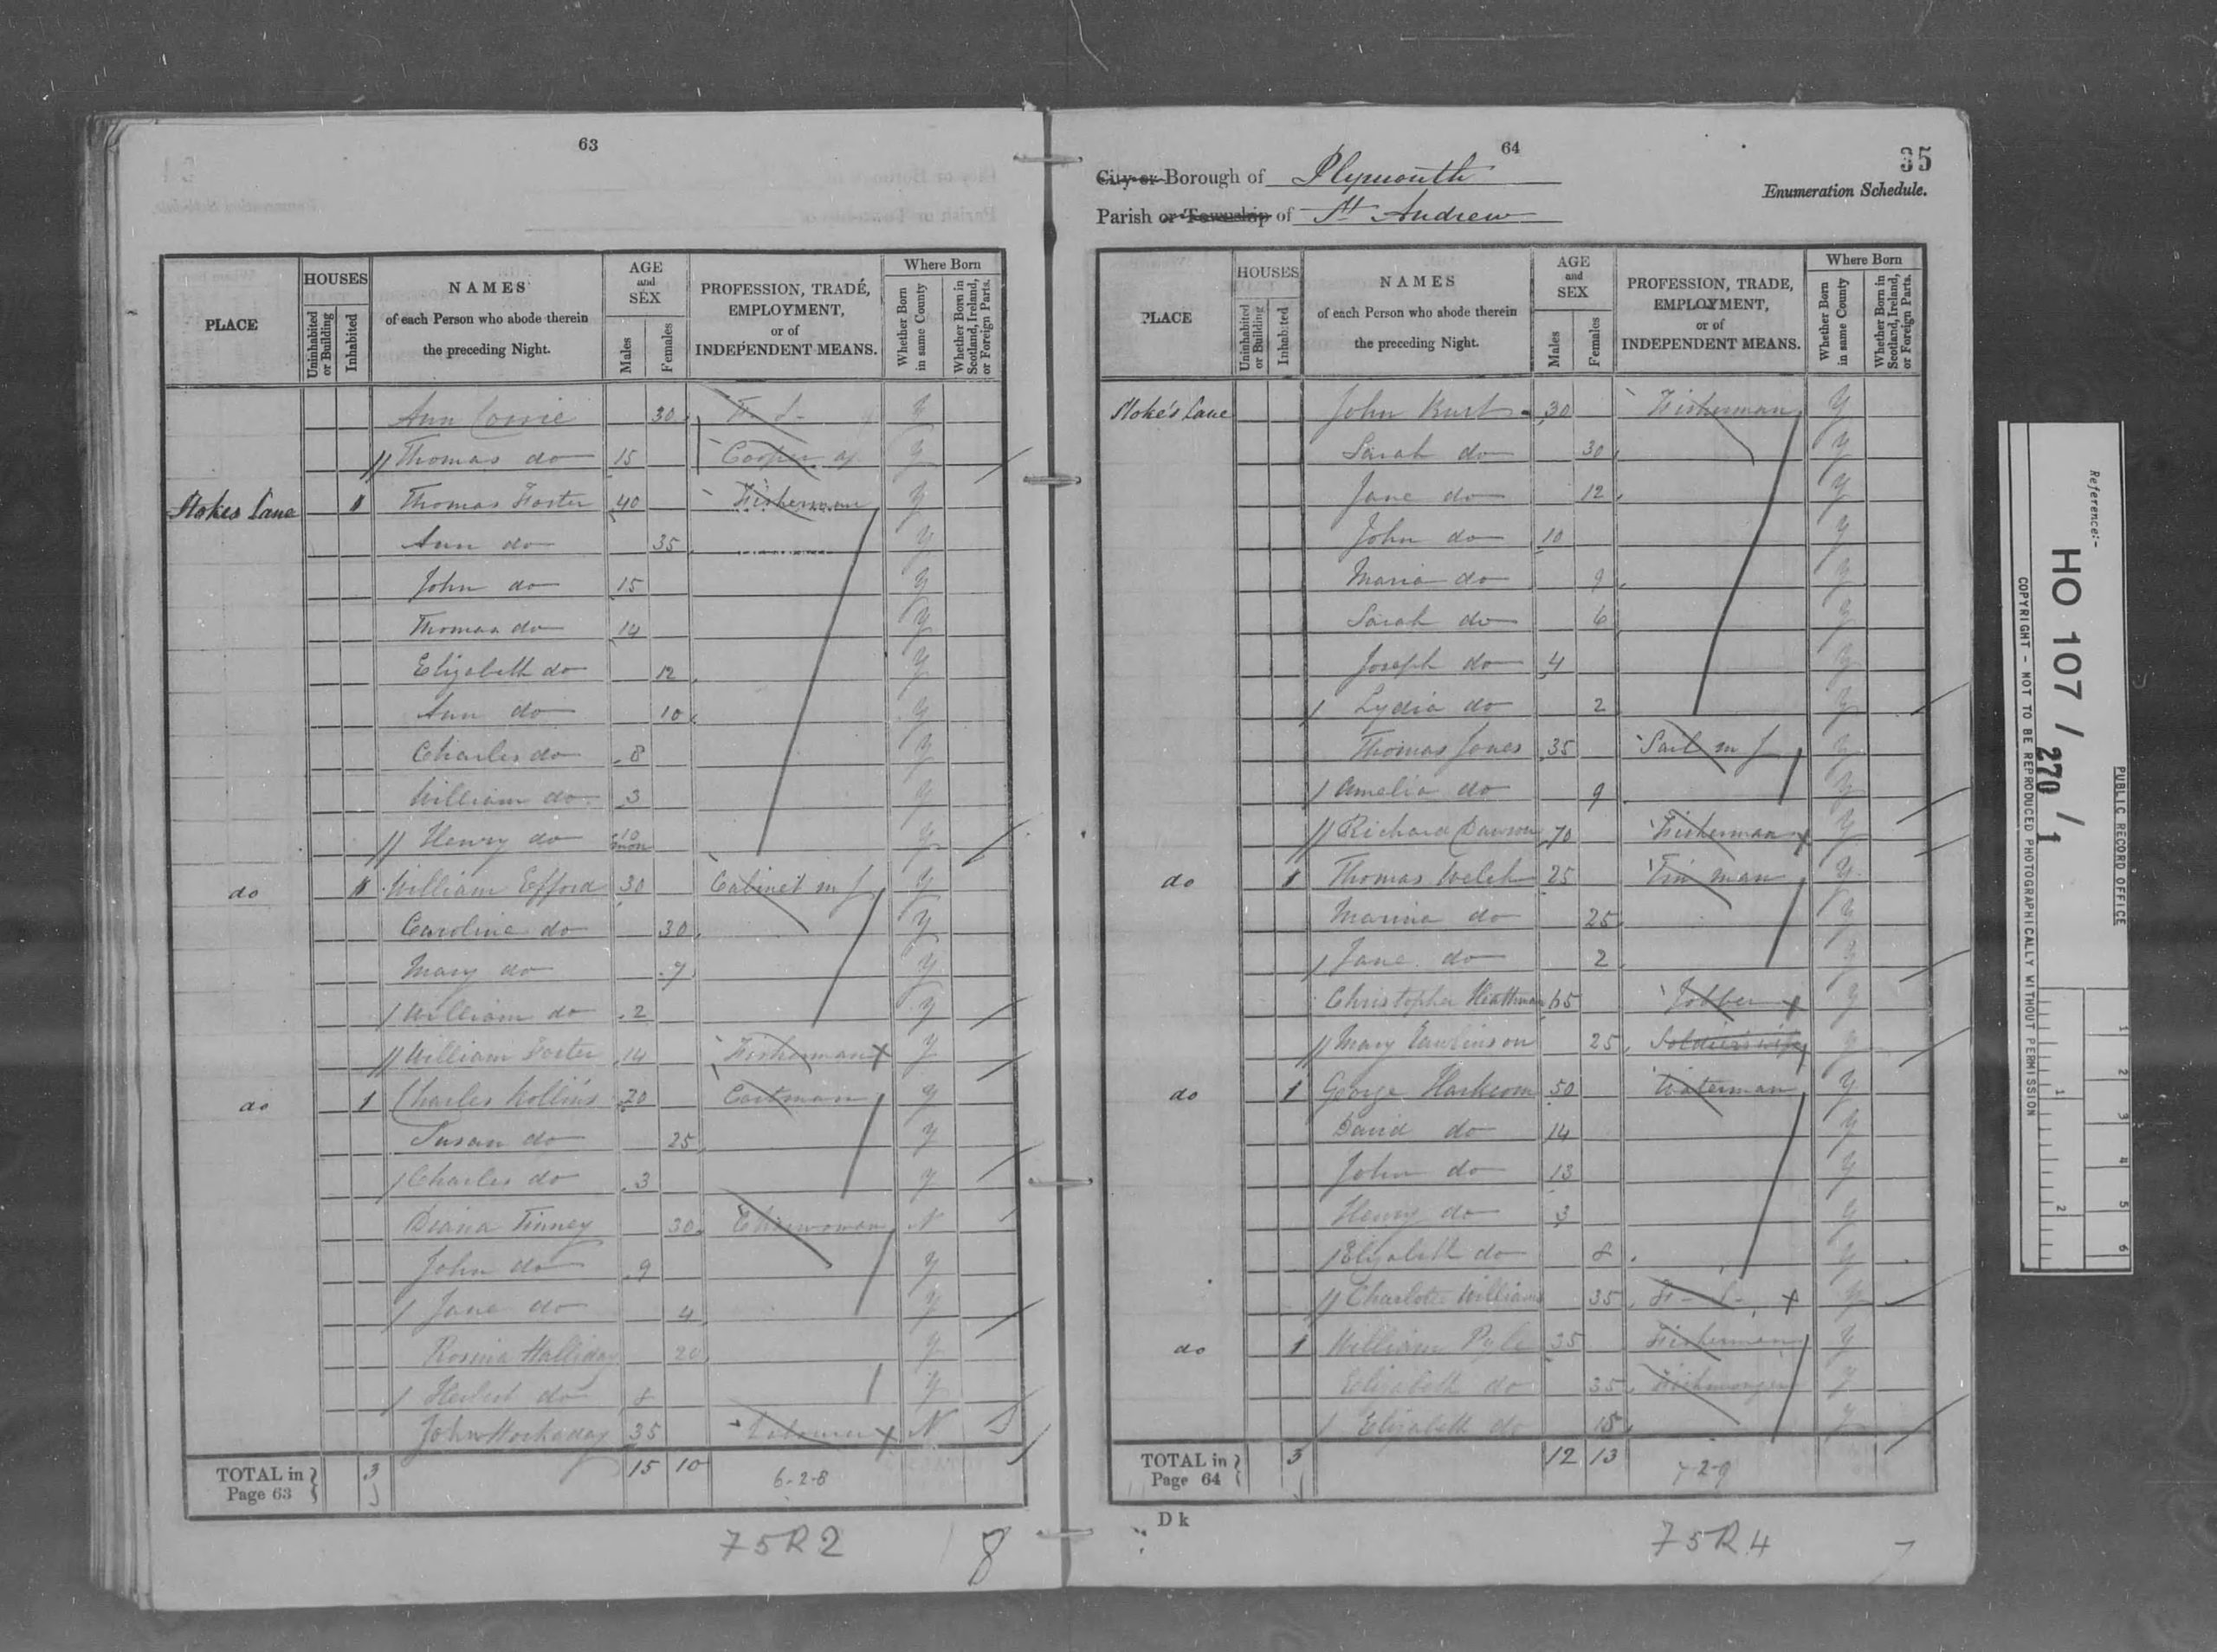 63
PLACE
HOUSES
Uninhabited or Building
Inhabited
NAMES
of each Person who abode therein
the preceding Night.
AGE
and
SEX
Males
Females
PROFESSION, TRADE,
EMPLOYMENT,
or of
INDEPENDENT MEANS.
Where Born
Whether Born in same County
Whether Born in Scotland, Ireland, or Foreign Parts.
Ann 30 F. S. Y
Thomas do 15 Cooper ap Y
Stokes Lane 1 Thomas Foster 40 Fisherman Y
Ann do 35 Y
John do 15 Y
Thomas do 14 Y
Elizabeth do 12 Y
Ann do 10 Y
Charles do 8 Y
William do 3 Y
Henry do 10 mon Y
do 1 William Efford 30 Cabinet m J Y
Caroline do 30 Y
Mary do 7 Y
William do 2 Y
William Foster 14 Fisherman Y
do 1 Charles Hollins 20 Cartman Y
Susan do 25 Y
Charles do 3 Y
Diana Tinney 30 Charwoman N
John do 9 Y
Jane do 4 Y
Rosina Halliday 20 Y
Herbert do 8 Y
John Hockaday 35 Labourer N
TOTAL in Page 63 3 15 10 6-2-8
75R2 8
64
35
City or Borough of Plymouth
Enumeration Schedule.
Parish or Township of St Andrew
PLACE
HOUSES
Uninhabited or Building
Inhabited
NAMES
of each Person who abode therein
the preceding Night.
AGE
and
SEX
Males
Females
PROFESSION, TRADE,
EMPLOYMENT,
or of
INDEPENDENT MEANS.
Where Born
Whether Born in same County
Whether Born in Scotland, Ireland, or Foreign Parts.
Stoke's Lane John Burt 30 Fisherman Y
Sarah do 30 Y
Jane do 12 Y
John do 10 Y
Maria do 9 Y
Sarah do 6 Y
Joseph do 4 Y
Lydia do 2 Y
Thomas Jones 35 Sail m J Y
Amelia do 9 Y
Richard Dawson 70 Fisherman Y
do 1 Thomas Welch 25 Tin man Y
Marina do 25 Y
Jane do 2 Y
Christopher Heathman 65 Jobber Y
Mary 25 Soldier's wife Y
do 1 George Harkcom 50 Waterman Y
David do 14 Y
John do 13 Y
Henry do 3 Y
Elizabeth do 8 Y
Charlotte Williams 35 Y
do 1 William Pyle 35 Fisherman Y
Elizabeth do 35 Fishmonger Y
Elizabeth do 15 Y
TOTAL in Page 64 3 12 13 7-2-9
D k
75R4
PUBLIC RECORD OFFICE
Reference:-
HO 107 / 270 / 1
COPYRIGHT - NOT TO BE REPRODUCED PHOTOGRAPHICALLY WITHOUT PERMISSION
1 2 3 4 5 6
1 2